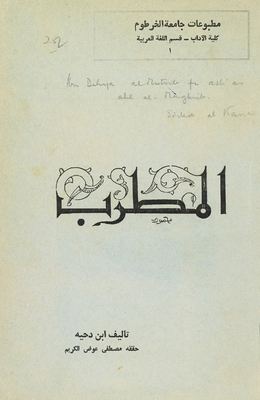 مطبوعات جامعة الخرطوم
كلية الآداب - قسم اللغة العربية
١
Ibn Dihya al-Mutrib fi ash'ar
ahl al-Maghrib.
المطرب
تأليف ابن دحيه
حققه مصطفى عوض الكريم